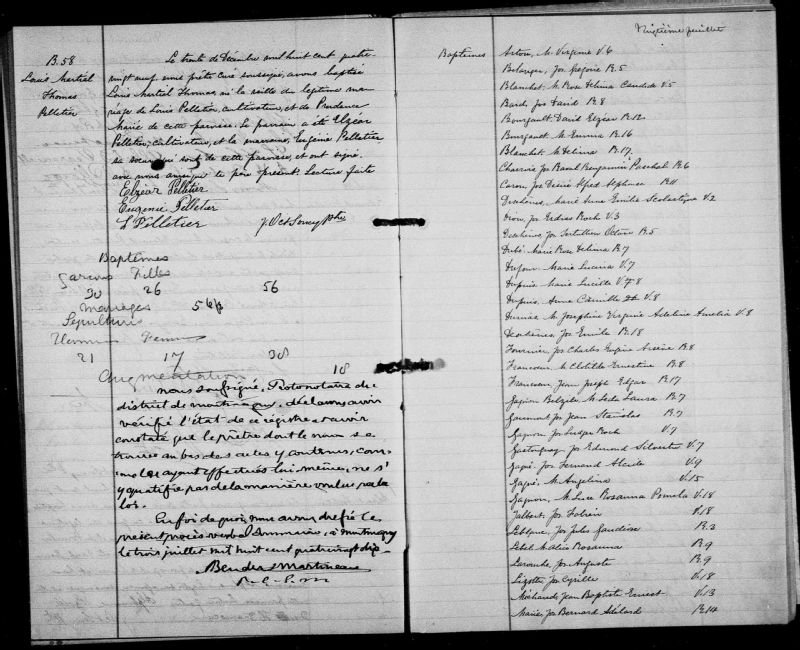 B.58
Louis Martial
Thomas
Pelletier
Le trente de Décembre mil huit cent quatre-
vingt neuf, nous prêtre curé soussigné, avons baptisé
Louis Martial Thomas, né la veille du légitime ma-
riage de Louis Pelletier, cultivateur, et de Prudence
Marie de cette paroisse. Le parrain a été Elzéar
Pelletier, cultivateur, et la marraine, Eugénie Pelletier,
sa soeur qui sont de cette paroisse, et ont signé
avec nous ainsi que le père présent. Lecture faite
Elzéar Pelletier
Eugenie Pelletier
L Pelletier
Baptêmes
Garçons Filles
30 26 56
Mariages 5
Sépultures
Hommes Femmes
21 17 38
Augmentation 18
nous soussigné, Protonotaire du
district de montmagny, déclarons avoir
vérifié l'état de ce régistre et avoir
constaté que le prêtre dont le nom se
trouve au bas des actes y contenus, com-
me les ayant effectués lui même, ne s'
y qualifie pas de la manière voulue par la
loi.
En foi de quoi, nous avons dressé le
présent procès verbal sommaire, à montmagny
le trois juillet mil huit cent quatrevingt dix
Bender Martineau
P. C. S. M
Vingtième feuillet
Baptêmes
Acton, M. Virginie V.6
Belanger, Jos Grégoire R.5
Blanchet, M. Rose Delima Candide V.5
Bard, Jos David R.8
Bourgault, David Elzéar R.12
Bourgault, M. Emma R.16
Blanchet, M. Delima R.17
Jos Raoul Benjamin Paschal R.6
Caron, Jos Désiré Alfred Alphonse R.11
Deschênes, Marie Anne Emilie Scholastique V.2
Dion, Jos Esdras Roch V.3
Deschênes, Jos Tertullien Octave R.5
Dubé Marie Rose Delima R.7
Dufour Marie Lucina V.7
Dupuis Marie Lucille V.8
Dupuis, Anne Camille V.8
Dumas, M. Josephine Virginie Adeline Amelia V.8
Deschênes, Jos Emile R.18
Fournier, Jos Charles Eugène Arsène R.8
Francoeur M. Clotilde Ernestine R.8
Francoeur, Jean Joseph Edgar R.17
Gagnon Belzile, M. Leda Laura R.7
Gaumont Jos Jean Stanislas R.7
Gagnon Jos Ludger Roch V.7
Gastonguay, Jos Edmond Silvestre V.7
Gagné, Jos Fernand Alcide V.9
Gagné, M. Angelina V.15
Gagnon, M. Luce Rosanna Pamela V.18
Jalbert, Jos V.18
Leblanc, Jos Jules Gaudiose R.3
Lebel M. Alice Rosanna R.9
Larouche, Jos Auguste R.9
Lizotte, Jos Cyrille V.18
Michaud, Jean Baptiste Ernest V.13
Marié, Jos Bernard Adélard R.14